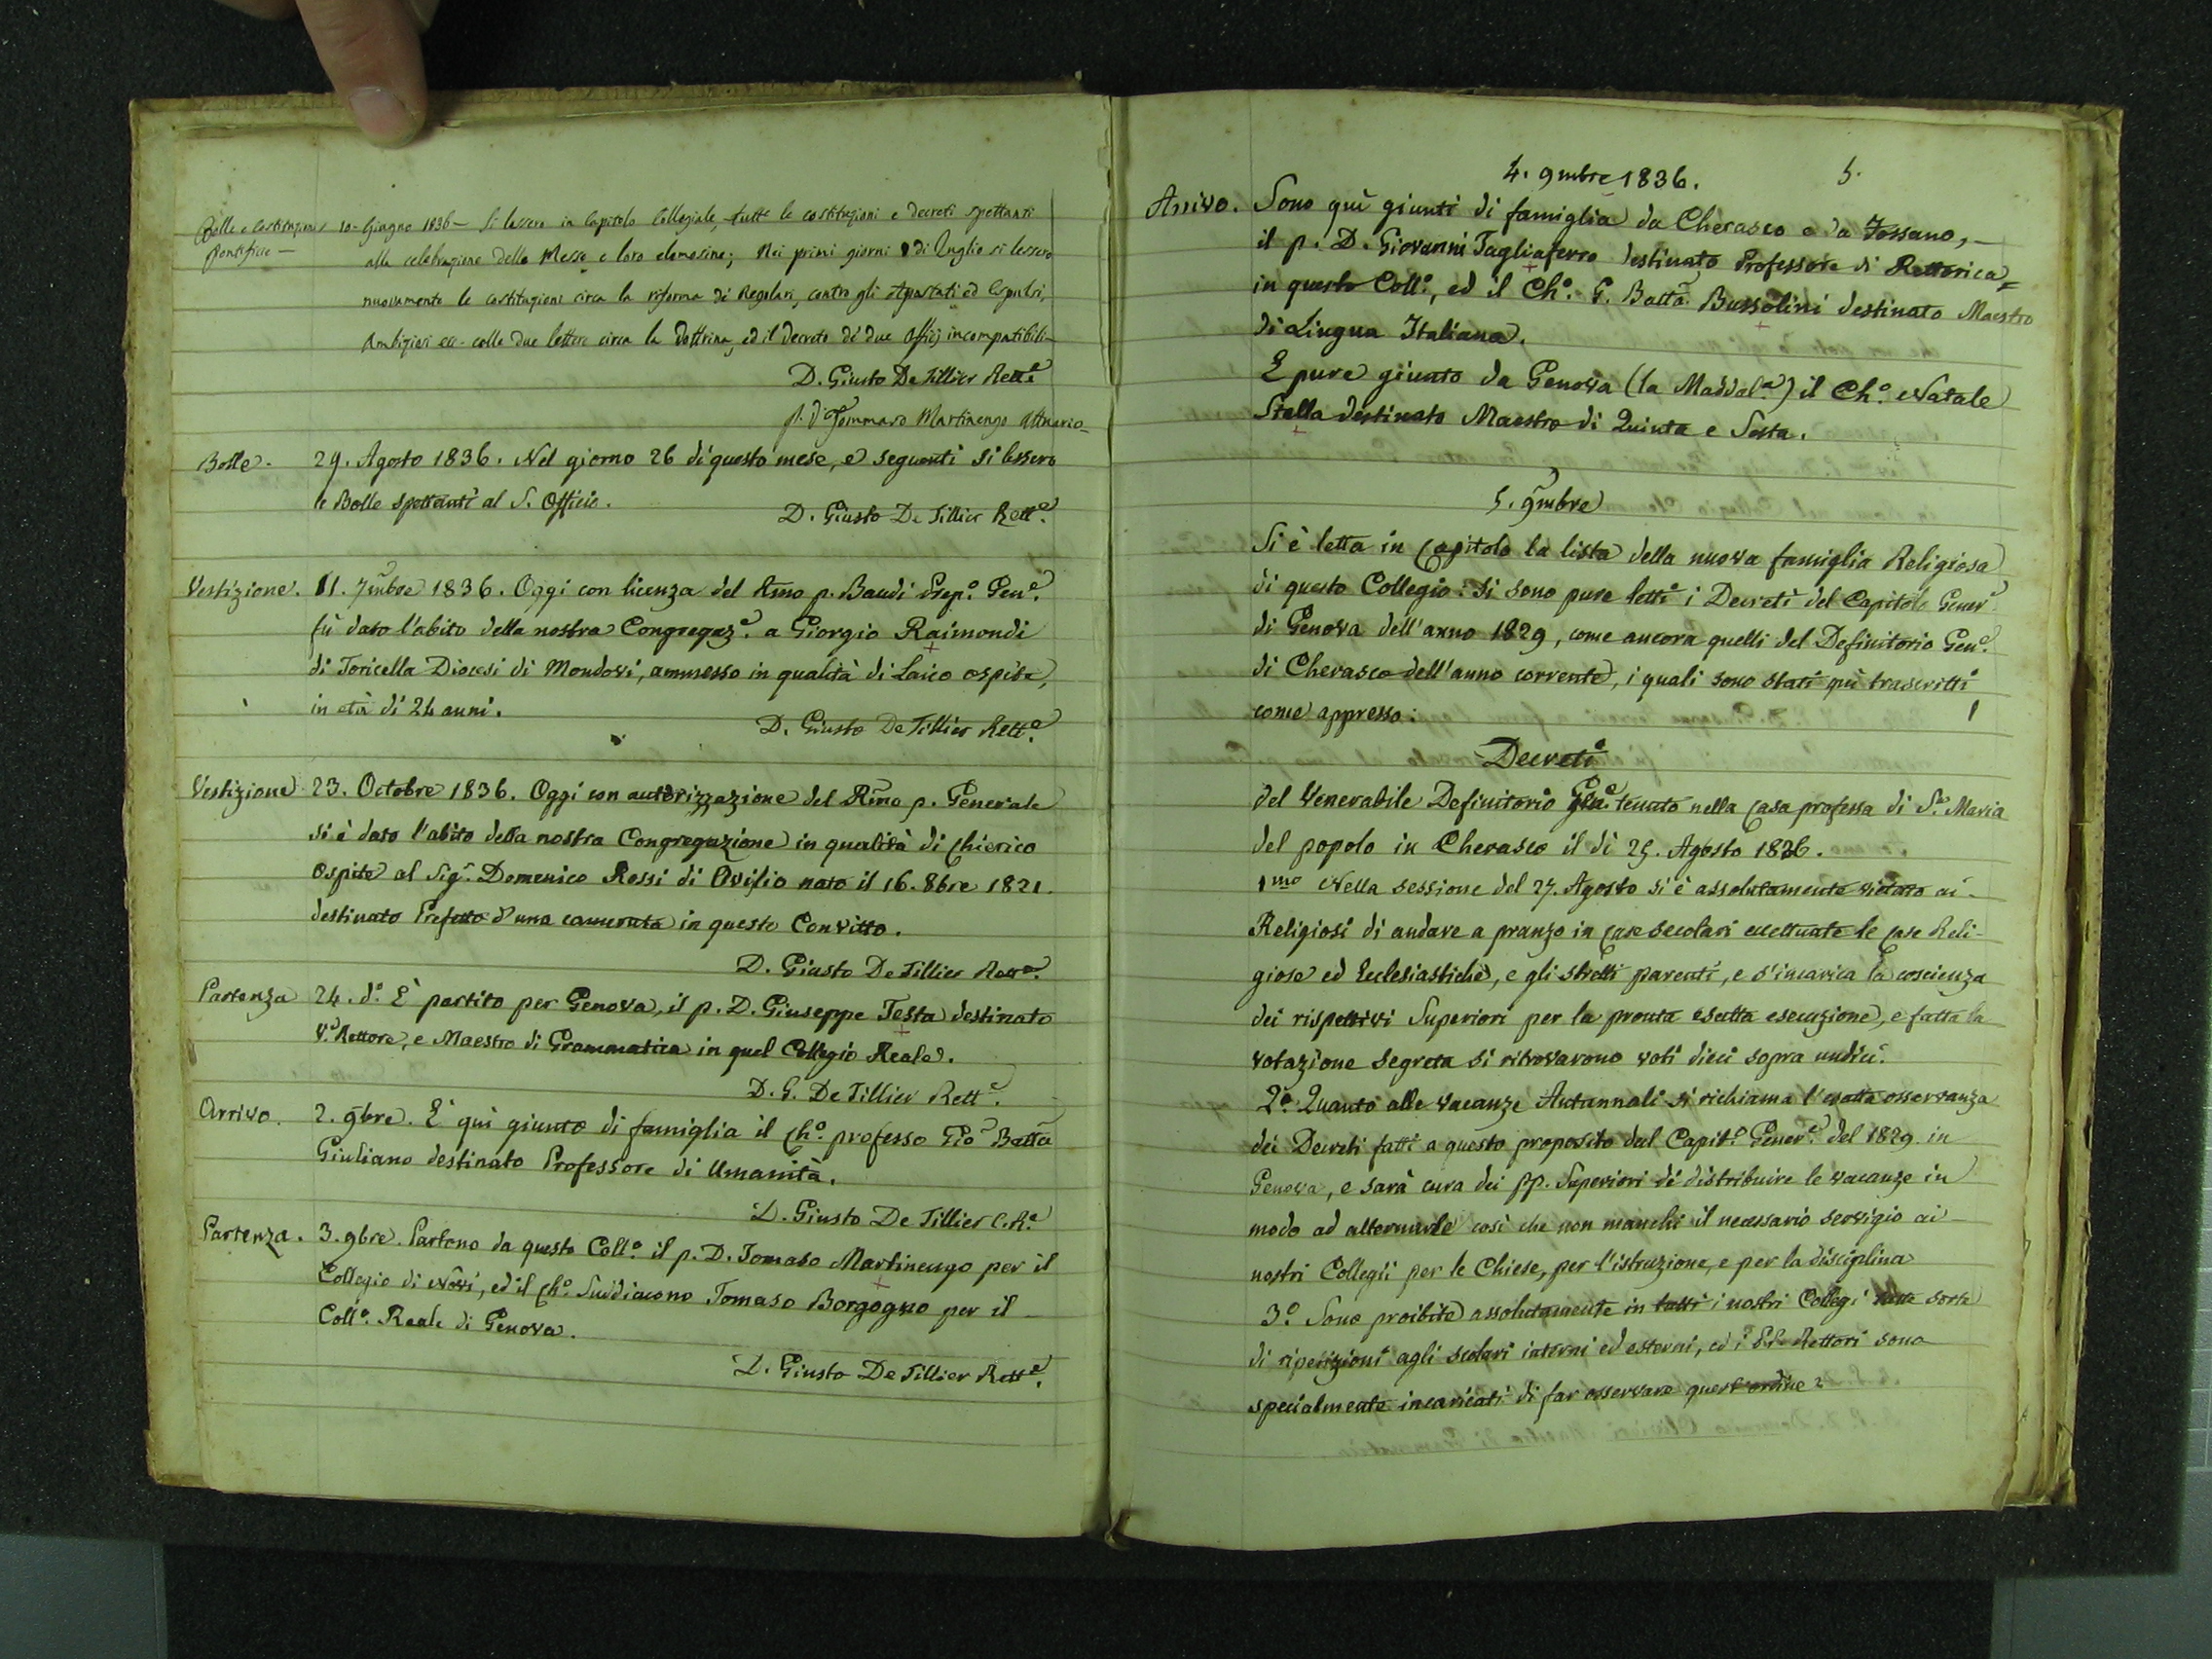 Bolle e Costituzioni 10 - Giugno 1836 - Si lessero in Capitolo Collegiale, tutte le costituzioni e decreti spettanti
Pontificie - alla celebrazione delle Messe e loro elemosine; Nei primi giorni di Luglio si lessero
nuovamente le costituzioni circa la riforma di Regolari, contro gli Apostati ed Espulsi,
Ambiziosi ecc - colle due lettere circa la dottrina, ed il decreto di due Officj incompatibili -
D. Giusto De Tillier Rett.e
p. D. Tommaso Martinengo Attuario -
Bolle - 29. Agosto 1836. Nel giorno 26 di questo mese, e seguenti si lessero
le Bolle spettanti al S. Officio.
D. Giusto De Tillier Rett.e
Vestizione. 11. 7mbre 1836. Oggi con licenza del Rmo p. Baudi Prep.o Gen.e
fù dato l'abito della nostra Congregaz.e a Giorgio Raimondi
di Toricella Diocesi di Mondovi, ammesso in qualità di Laico ospite,
in età di 24 anni.
D. Giusto De Tillier Rett.e
Vestizione 23. Octobre 1836. Oggi con autorizzazione del Rmo p. Generale
si è dato l'abito della nostra Congregazione in qualità di Chierico
Ospite al Sig.r Domenico Rossi di Ovilio nato il 16. 8bre 1821.
destinato Prefetto d'una camerata in questo Convitto.
D. Giusto De Tillier Rett.e
Partenza 24. d.o È partito per Genova, il p. D. Giuseppe Testa destinato
V.e Rettore, e Maestro di Grammatica in quel Collegio Reale.
D. G. De Tillier Rett.e
Arrivo. 2. 9bre. È qui giunto di famiglia il Ch.o professo Gio Batta
Giuliano destinato Professore di Umanità.
D. Giusto De Tillier C.R.e
Partenza. 3. 9bre. Partono da questo Coll.o il p. D. Tomaso Martinengo per il
Collegio di Novi, ed il Ch.o Suddiacono Tomaso Borgogno per il
Coll.o Reale di Genova.
D. Giusto De Tillier Rett.e
4. 9mbre 1836. 5.
Arrivo. Sono quì giunti di famiglia da Cherasco e da Fossano, -
il p. D. Giovanni Tagliaferro destinato Professore di Rettorica =
in questo Coll.o, ed il Ch.o G. Batta Bussolini destinato Maestro
di Lingua Italiana.
E pure giunto da Genova (la Maddal.a) il Ch.o Natale
Stella destinato Maestro di Quinta e Sesta.
5. 9mbre
Si è letta in Capitolo la lista della nuova famiglia Religiosa
di questo Collegio: si sono pure letti i Decreti del Capitolo Gener.e
di Genova dell'anno 1829, come ancora quelli del Definitorio Gen.e
di Cherasco dell'anno corrente, i quali sono stati quì trascritti
come appresso:
Decreti
del Venerabile Definitorio tenuto nella Casa professa di S.a Maria
del popolo in Cherasco il dì 25. Agosto 1836.
1mo Nella sessione del 27. Agosto si è assolutamente vietato ai -
Religiosi di andare a pranzo in case secolari eccettuate le Case Reli-
giose ed Ecclesiastiche, e gli stretti parenti, e s'incarica la coscienza
dei rispettivi Superiori per la pronta esatta esecuzione, e fatta la
votazione segreta si ritrovarono voti dieci sopra undici.
2.o Quanto alle vacanze Autunnali si richiama l'esatta osservanza
dei Decreti fatti a questo proposito dal Capit.o Gener.e del 1829 in
Genova, e sarà cura dei pp. Superiori di distribuire le vacanze in
modo ad alternarle così che non manchi il necessario servigio ai -
nostri Collegii per le Chiese, per l'istruzione, e per la disciplina
3.o Sono proibite assolutamente in tutti i nostri Collegi sorte
di ripetizioni agli scolari interni ed esterni, ed i Rettori sono
specialmente incaricati di far osservare quest'ordine